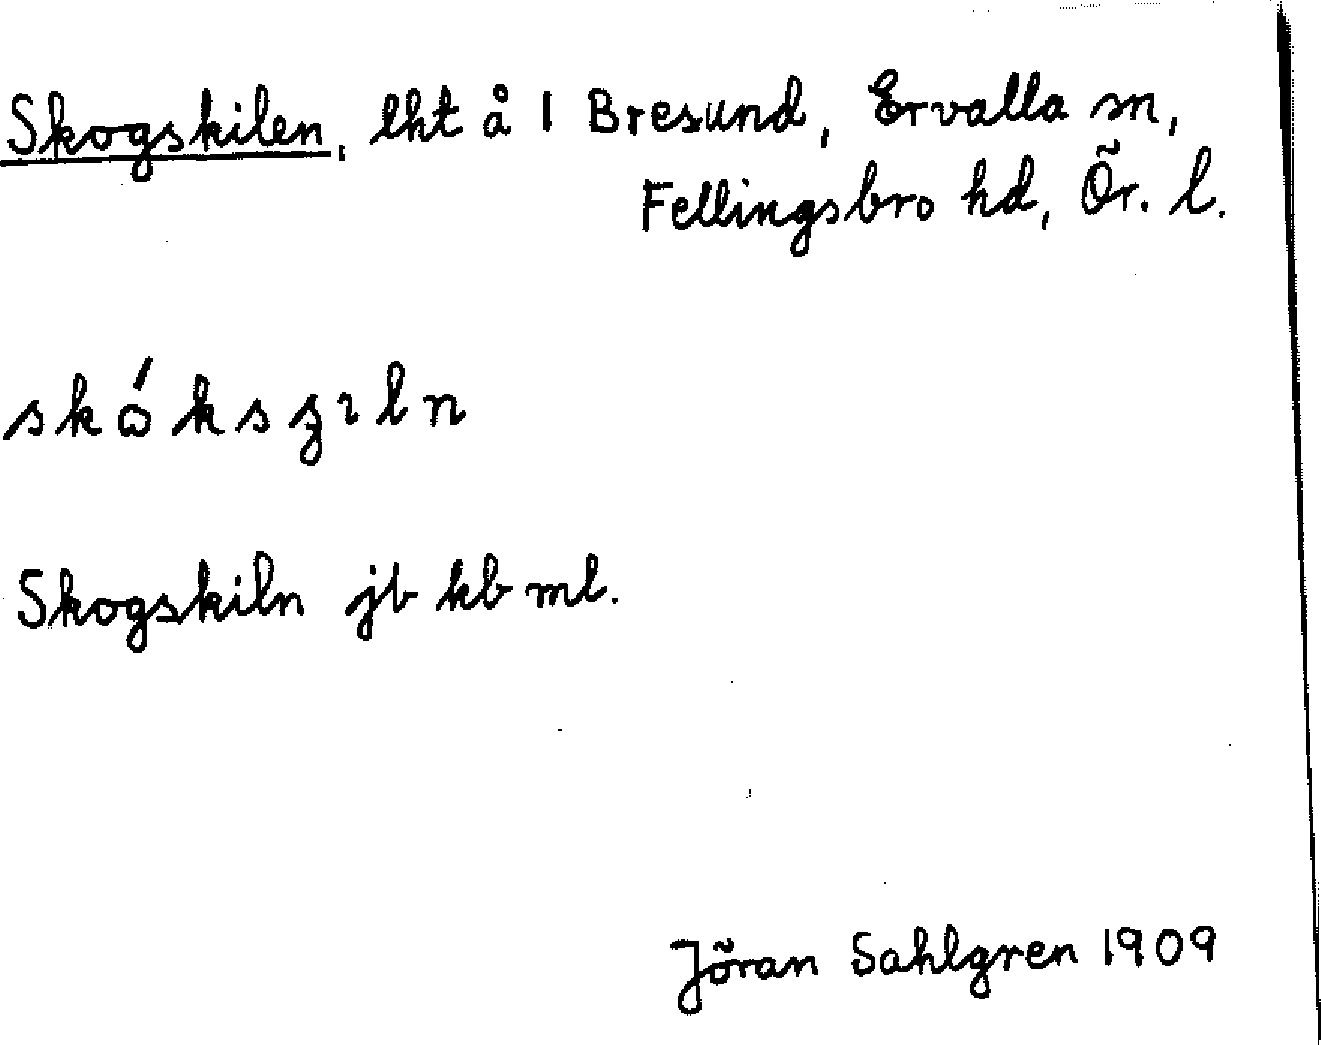 Skogskilen, lht å 1 Bresund, Ervalla sn,
Fellingsbro hd, Ör. l.
skǿksʒıln
Skogskiln jb kb ml.
Jöran Sahlgren 1909